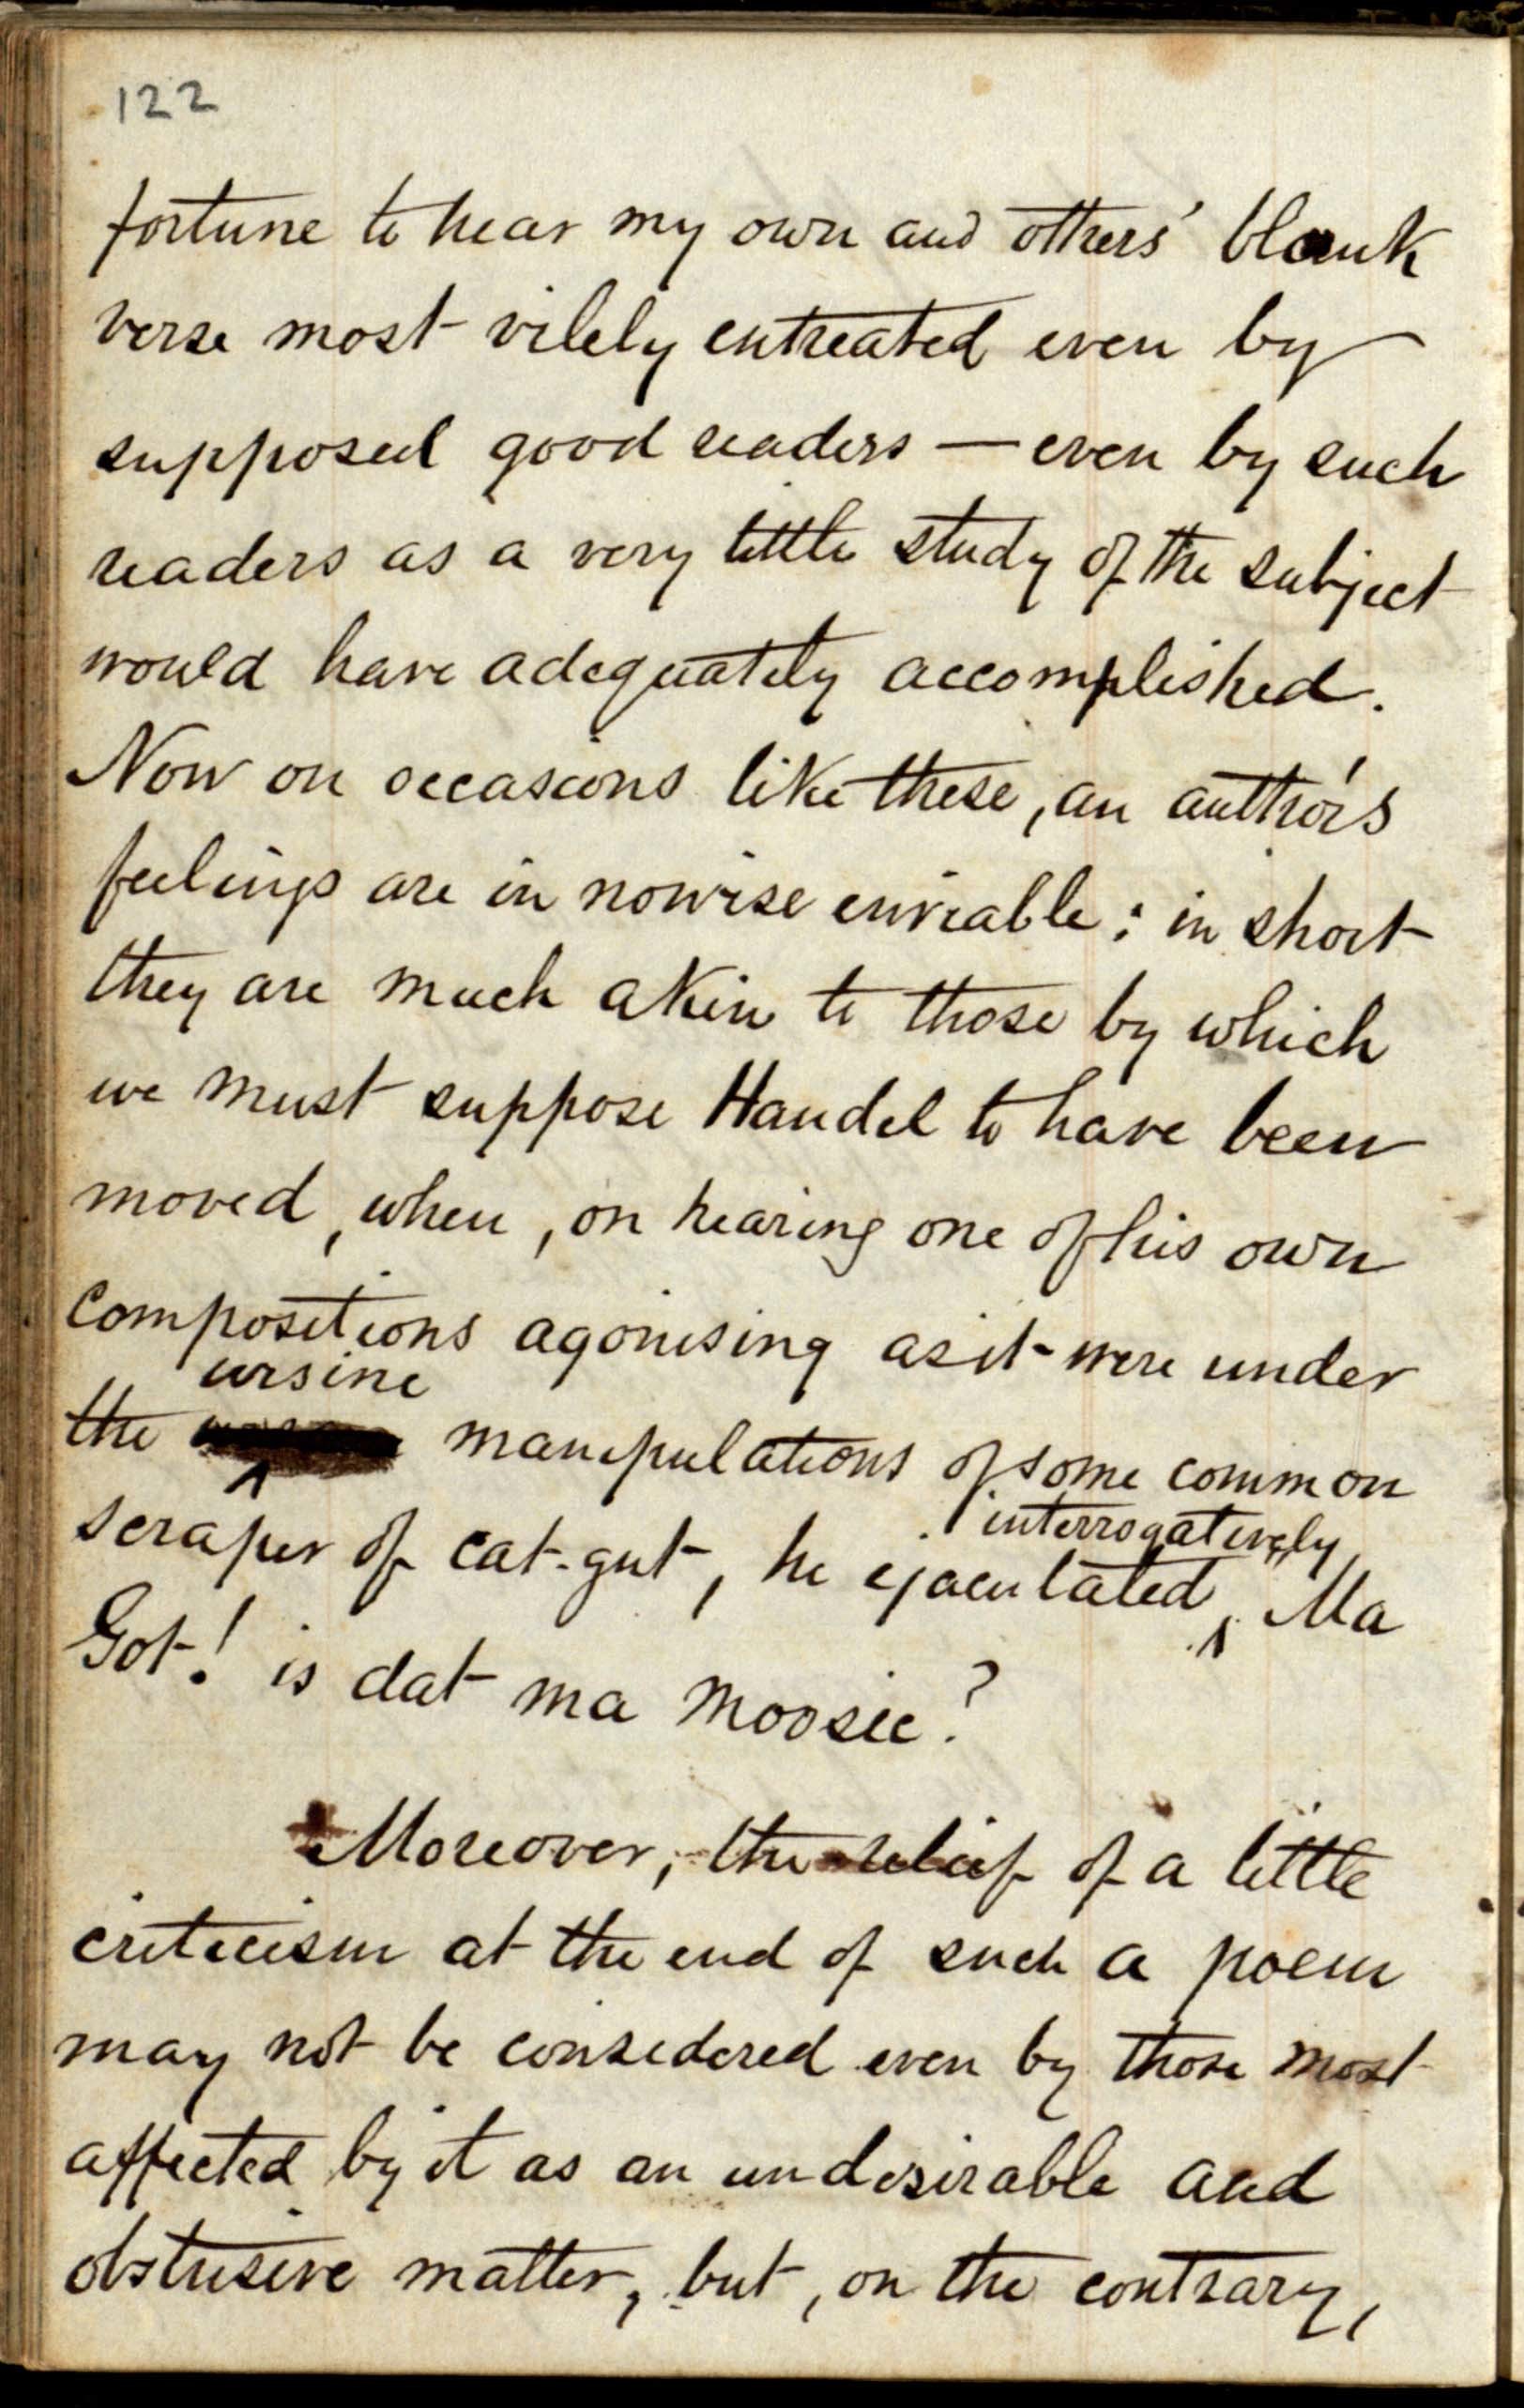 122
fortune to hear my own and others' blank
verse most vilely entreated even by
supposed good readers — even by such
readers as a very little study of the subject
would have adequately accomplished.
Now on occasions like these, an author's
feelings are in nowise enviable; in short
they are much akin to those by which
we must suppose Handel to have been
moved, when, on hearing one of his own
compositions agonising as it were under
ursine
the manipulations of some common
interrogatively,
scraper of cat-gut, he ejaculated, Ma
Got! is dat ma moosic?
Moreover, the relief of a little
criticism at the end of such a poem
may not be considered even by those most
affected by it as an undesirable and
obstrusive matter, but, on the contrary,